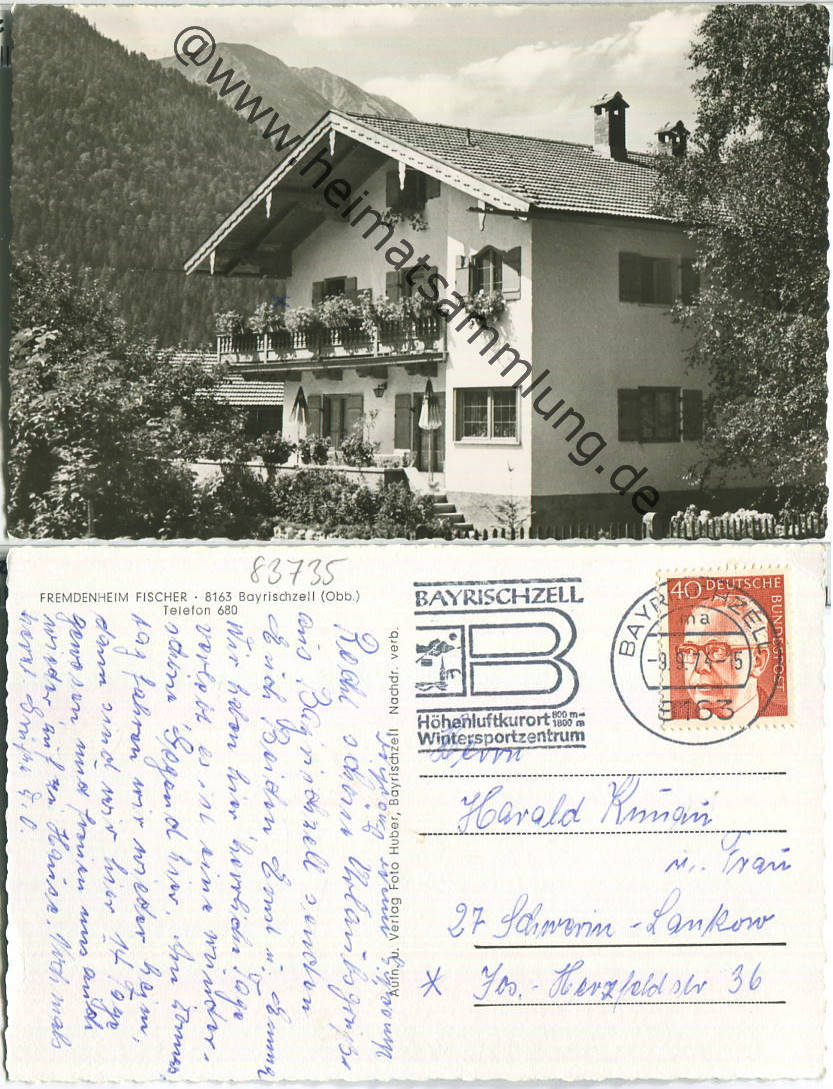 @www.heimatsammlung.de
83735
FREMDENHEIM FISCHER · 8163 Bayrischzell (Obb.)
Telefon 680
Recht schöne Urlaubsgrüße
aus Bayrischzell senden
Euch Beiden Ernst u. Emma
Wir haben hier herrliche Tage
verlebt es ist eine wunder-
schöne Gegend hier. Am Donners-
tag fahren wir wieder heim,
dann sind wir hier 14 Tage
gewesen und freuen uns auch
wieder auf zu Hause. Nochmals
herzl. Grüße
Aufn. u. Verlag Foto Huber, Bayrischzell Nachdr. verb.
BAYRISCHZELL
B
Höhenluftkurort 800 m-
1800 m
Wintersportzentrum
BAYRISCHZELL
ma
-9.9.74-15
8163
40 DEUTSCHE
BUNDESPOST
Herrn
Harald Kunau
u. Frau
27 Schwerin-Lankow
* Jos.-Herzfeldstr 36